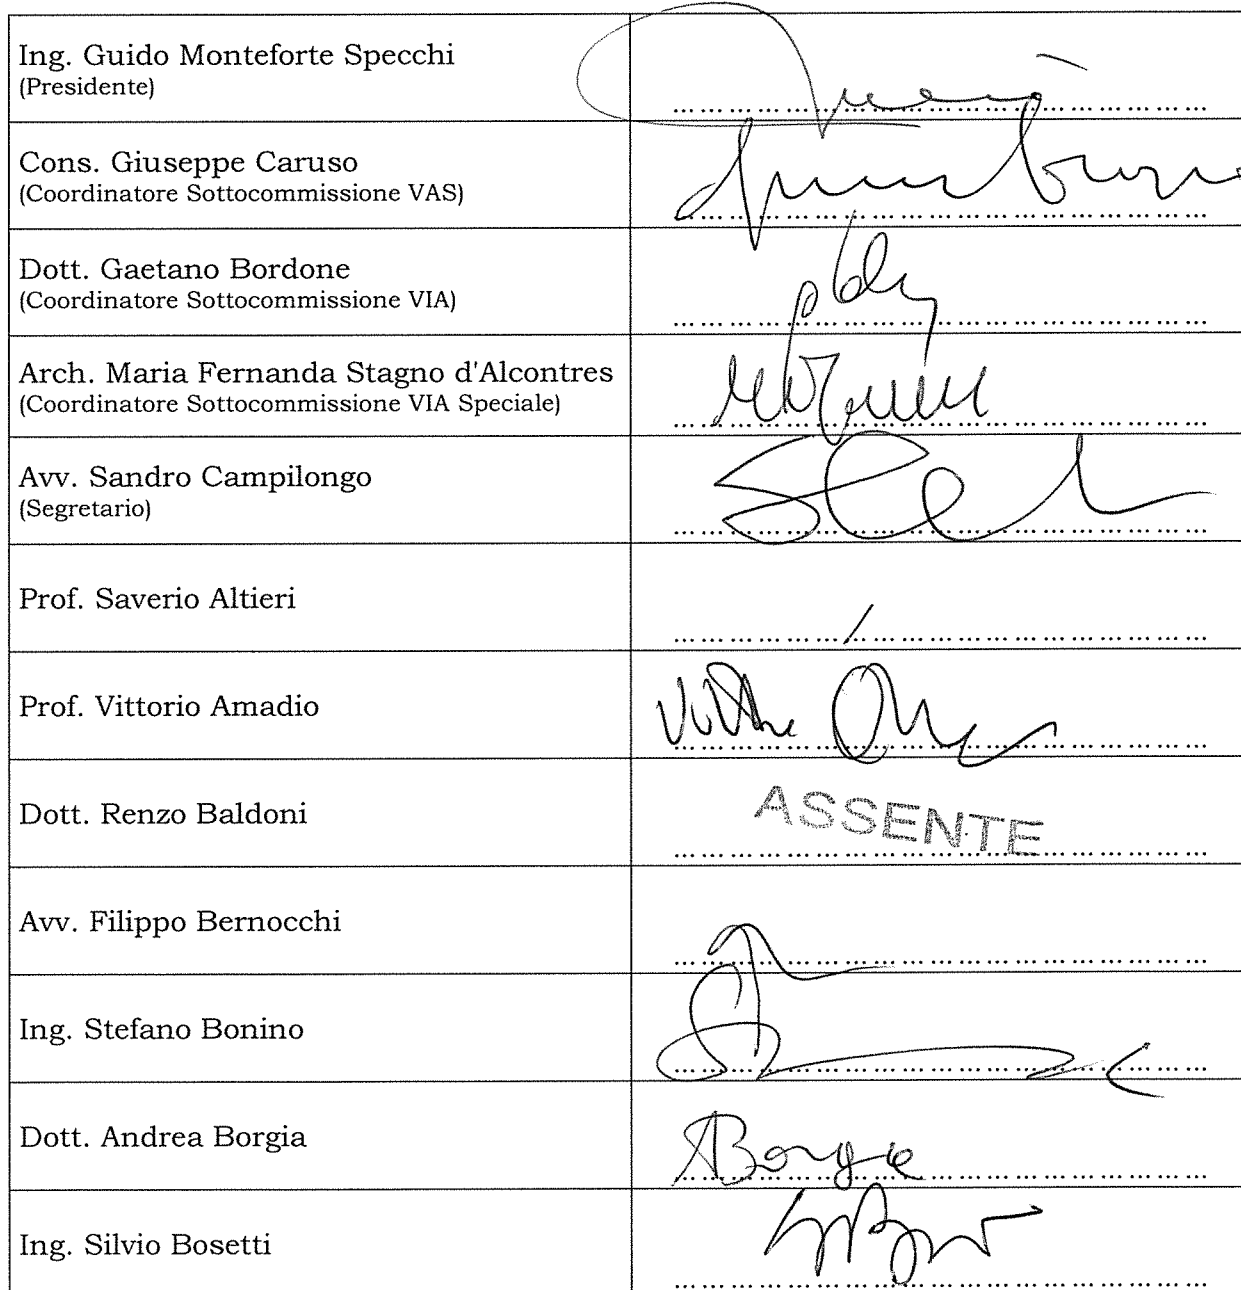 Ing. Guido Monteforte Specchi
(Presidente)
Cons. Giuseppe Caruso
(Coordinatore Sottocommissione VAS)
Dott. Gaetano Bordone
(Coordinatore Sottocommissione VIA)
Arch. Maria Fernanda Stagno d'Alcontres
(Coordinatore Sottocommissione VIA Speciale)
Avv. Sandro Campilongo
(Segretario)
Prof. Saverio Altieri
Prof. Vittorio Amadio
Dott. Renzo Baldoni
ASSENTE
Avv. Filippo Bernocchi
Ing. Stefano Bonino
Dott. Andrea Borgia
ABorgia
Ing. Silvio Bosetti